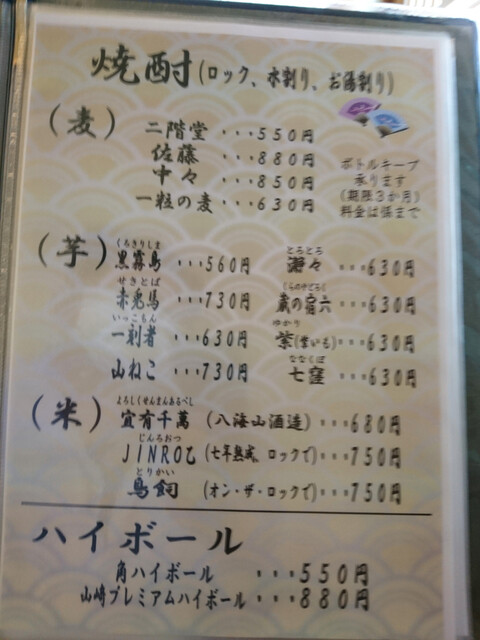 焼酎(ロック、水割り、お湯割り)
(麦)
二階堂 ・・・550円
佐藤 ・・・880円
中々 ・・・850円
一粒の麦 ・・・630円
ボトルキープ
承ります
(期限3か月)
料金は係まで
(芋)
くろきりしま
黒霧島 ・・・560円
せきとば
赤兎馬 ・・・730円
いっこもん
一刻者 ・・・630円
山ねこ ・・・730円
とろとろ
々 ・・・630円
くらのやどろく
蔵の宿六 ・・・630円
ゆかり
紫(紫いも)・・・630円
ななくぼ
七窪 ・・・630円
(米)
よろしくせんまんあるべし
宜有千萬 (八海山酒造)・・・680円
じんろおつ
JINRO乙(七年熟成、ロックで)・・・750円
とりかい
鳥飼 (オン・ザ・ロックで)・・・750円
ハイボール
角ハイボール ・・・550円
山崎プレミアムハイボール ・・・880円